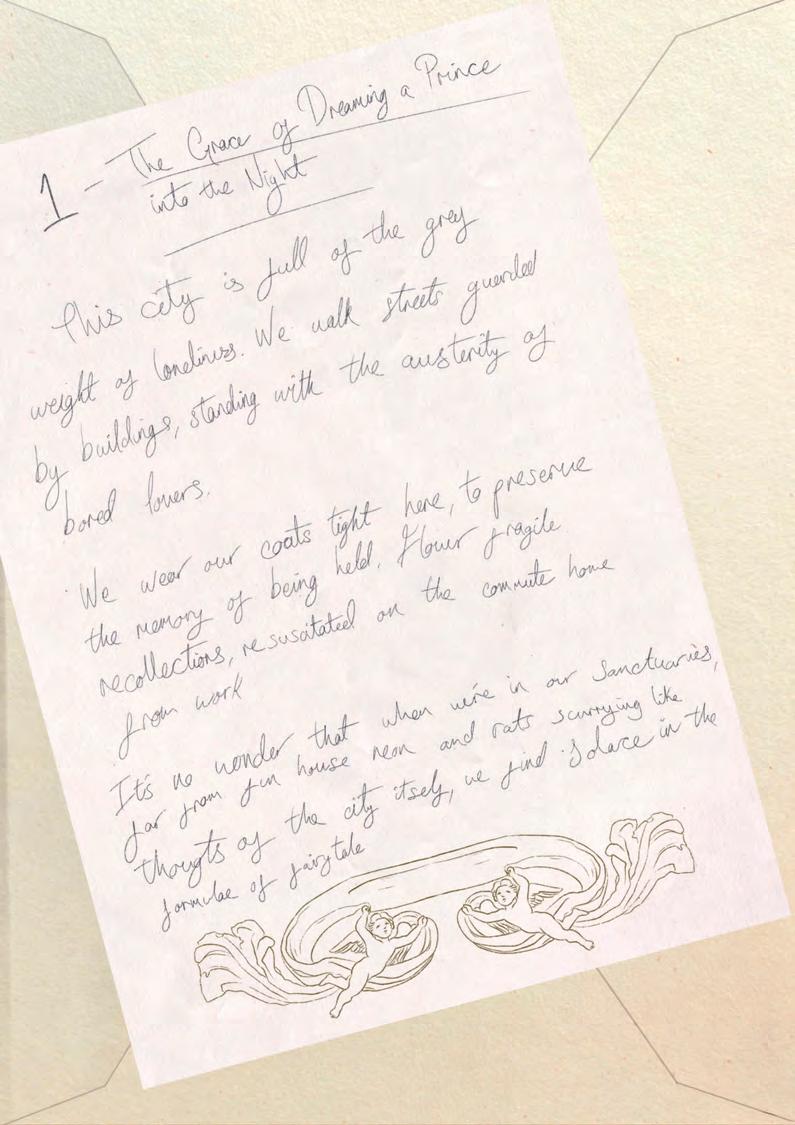 1 - The Grace of Dreaming a Prince
into the Night
This city is full of the grey
weight of loneliness. We walk streets guarded
by buildings, standing with the austerity of
bored lovers.
We wear our coats tight here, to preserve
the memory of being held. Flower fragile
recollections, resuscitated on the commute home
from work
It's no wonder that when we're in our sanctuaries,
far from fun house neon and rats scurrying like
thougts of the city itself, we find solace in the
formulae of fairytale